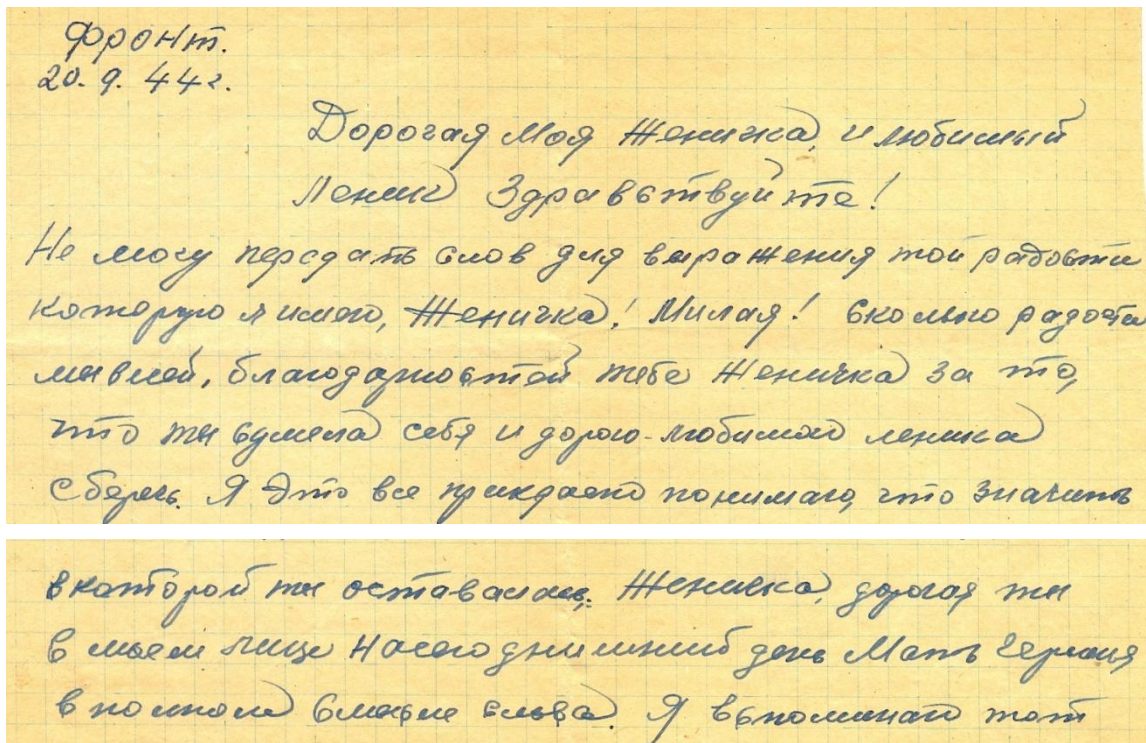 Фронт.
20. 9. 44 г.
Дорогая Моя Женичка, и любимый
Леник Здравствуйте!
Не могу передать слов для выражения той радости
которую я имею, Женичка! Милая! Сколько радости
мне в ней, благодарностей тебе Женичка за то,
что ты сумела себя и дорого-любимого леника
сберечь. Я Это все прикрасно понимаю, что значить
в которой ты оставалась. Женичка, дорогая ты
в моем лице на сегоднишний день Мать Героиня
в полном смысле слова. Я вспоминаю тот